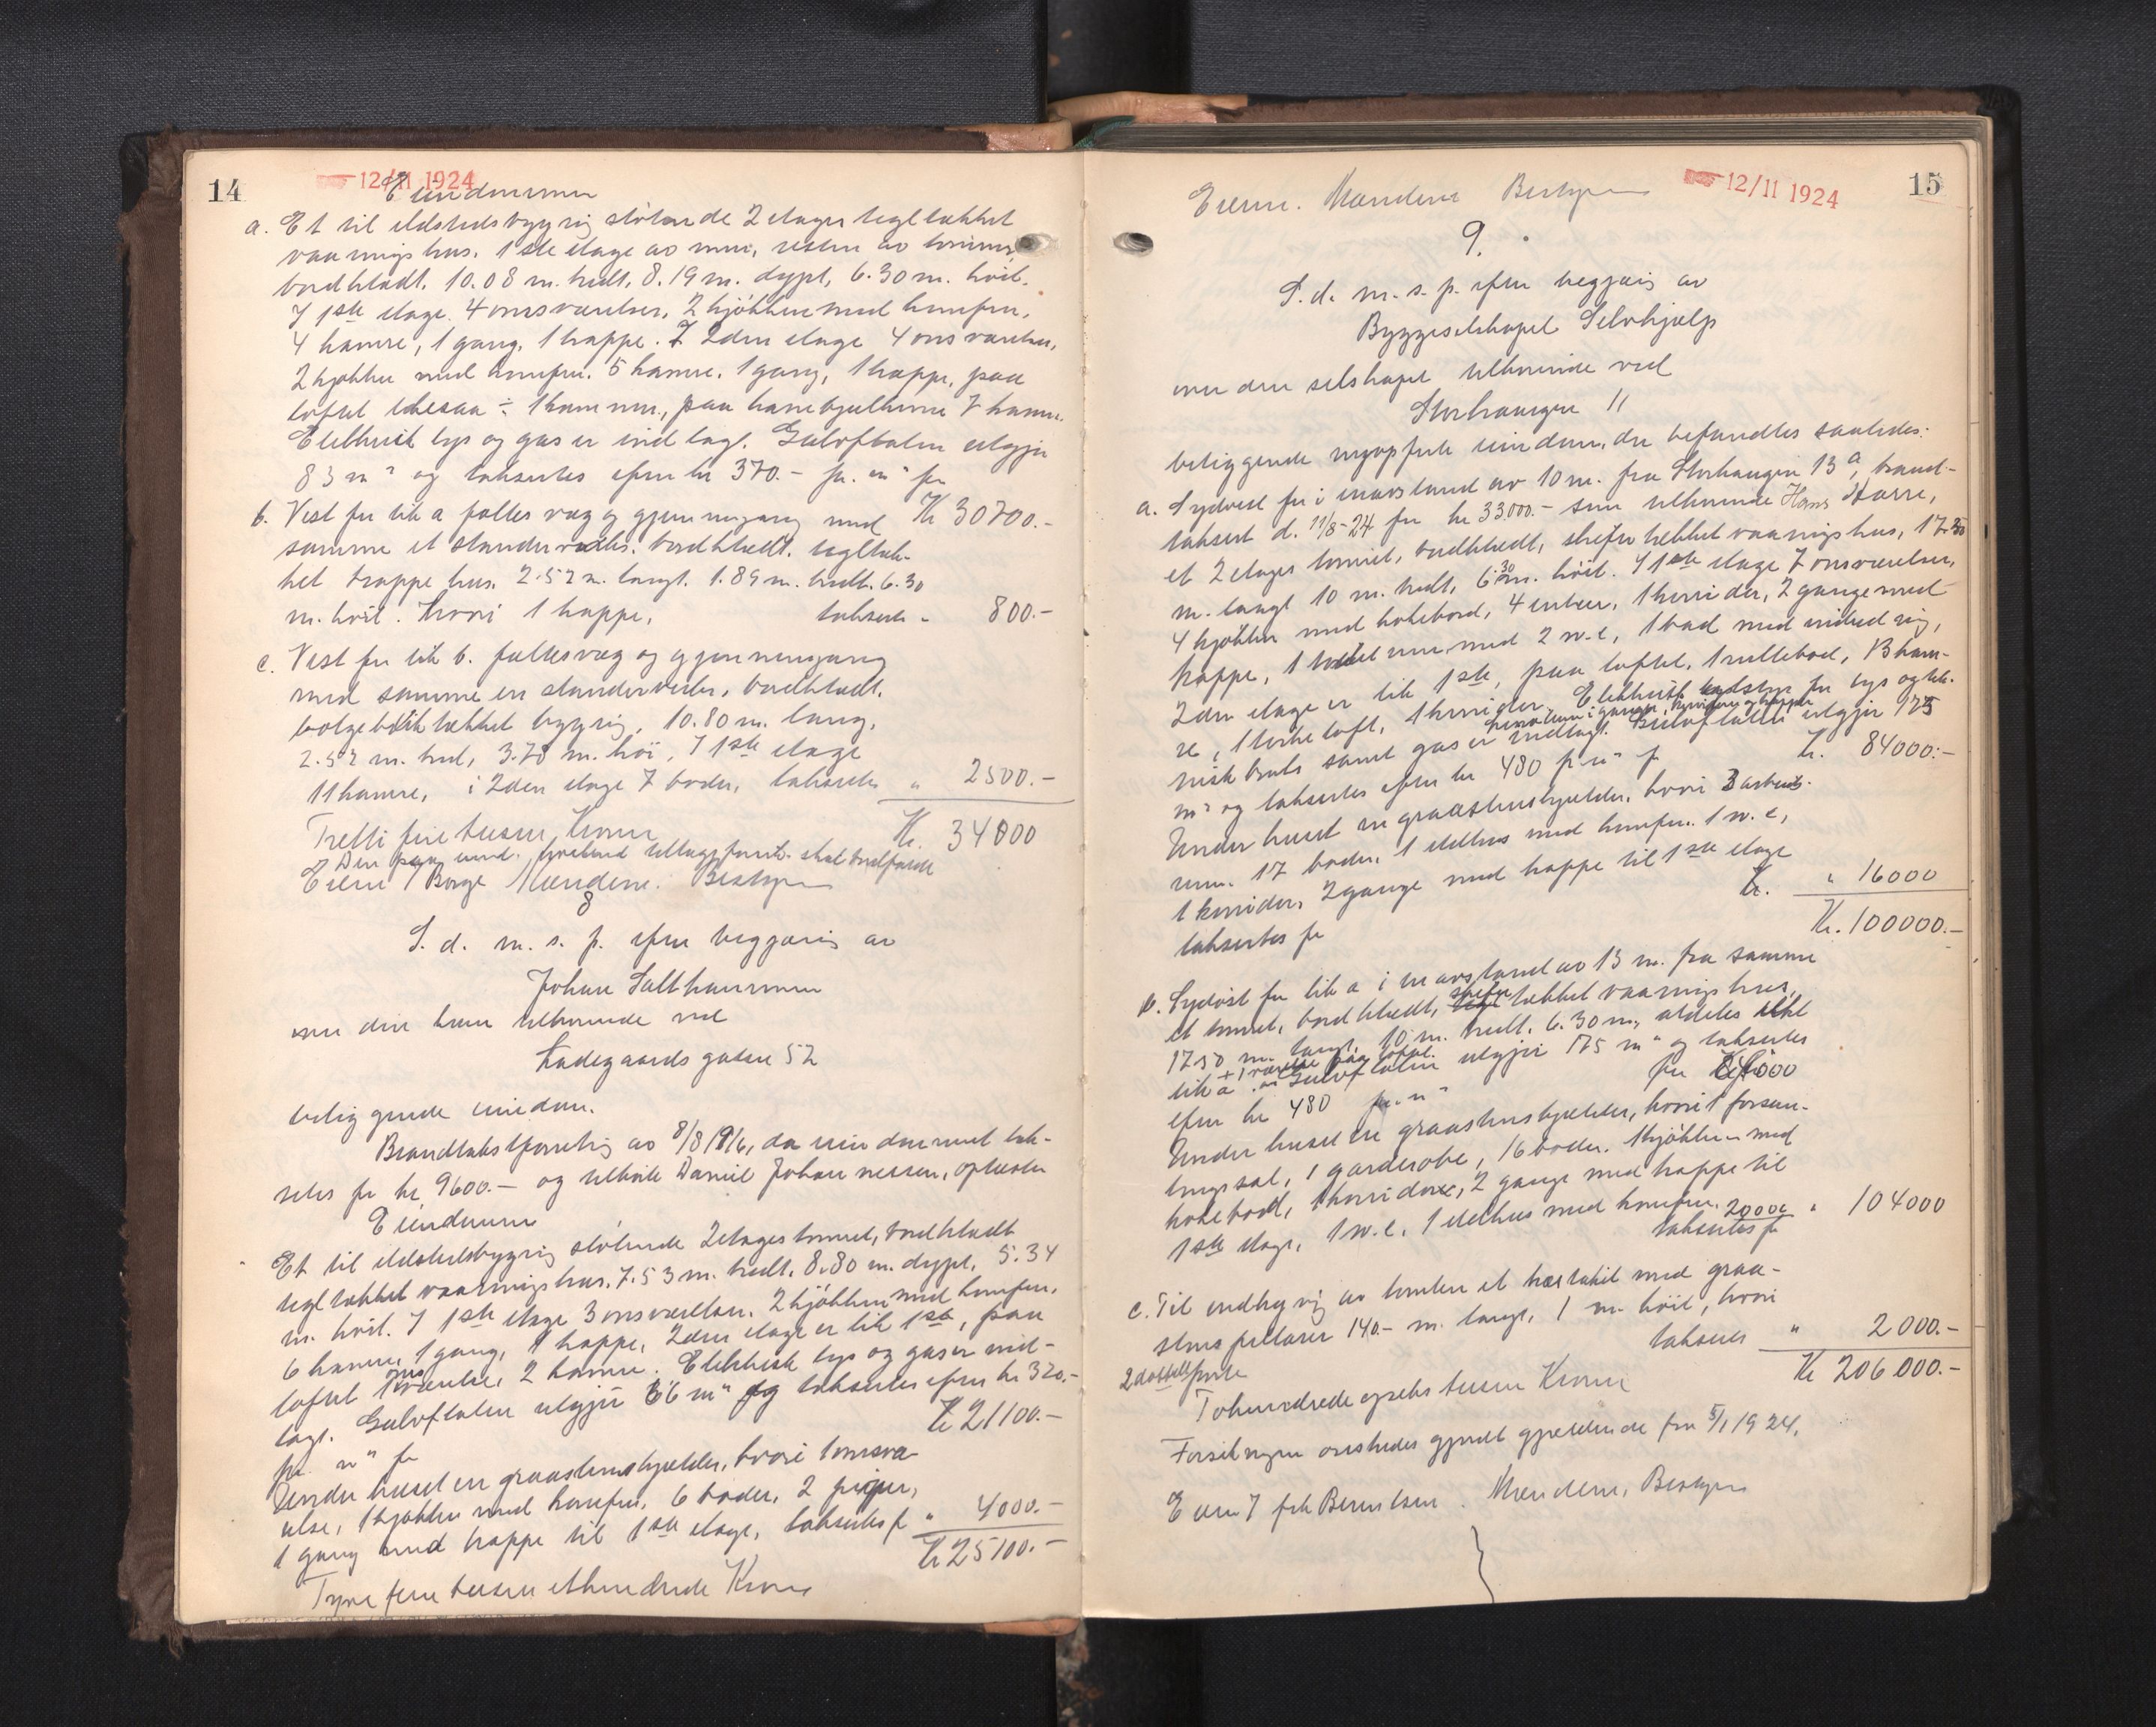 14
12/11 1924
Eiendommen
a. Et til ildstedsbygnig stötende 2 etages tegltækket
vaanings hus. 1ste etage av mur, resten av tömmer,
bordklædt. 10.08 m. bredt, 8.19 m. dypt, 6.30 m. höit.
I 1ste etage 4 onsværelser, 2 kjökken med komfur,
4 kamre, 1 gang, 1 trappe. I 2den etage 4 onsværelser,
2 kjökken med komfur. 5 kamre. 1 gang, 1 trappe, paa
loftet likesaa ÷ 1 kammer, paa hanebjælkerne 7 kamre.
Elektrisk lys og gas er indlagt. Gulvflaten utgjör
83 m² og takseres efter kr 370.- pr. m² for
Kr 30700.-
b. Vest for lit. a fælles væg og gjennemgang med
samme et standerverks. bordklædt. tegltæk-
ket trappe hus. 2.52 m. langt. 1.89 m. bredt. 6.30
m. höit. Hvori 1 trappe, takseret " 800.-
c. Vest for lit. b. fælles væg og gjennemgang
med samme en standerverks, bordklædt.
bölgeblik tækket bygnig, 10.80 m. lang,
2.52 m. bred, 3.78 m. höi, I 1ste etage
11 kamre, i 2den etage 7 boder, takseret " 2500.-
Tretti fire tusen kroner Kr. 34000
Eieren Borge Mændene. Bestyrer
8
S. d. m. s. p. efter begjæring av
Johan Salthammer
over den ham tilhörende ved
Ladegaards gaten 52
beliggende eiendom.
Brandtakstforretnig av 8/8 1916, da eiendommen tak-
seres for kr. 9600.- og tilhörte Daniel Johannessen, oplæstes
Eiendommen
Et til ildstedsbygnig stötende 2 etages tömret, bordklædt
tegltækket vaanings hus. 7.53 m. bredt. 8.80 m. dypt, 5.34
m. höit. I 1ste etage 3 onsværelser. 2 kjökken med komfur,
6 kamre, 1 gang, 1 trappe, 2den etage er lik 1ste, paa
loftet 1 onsværelse, 2 kamre. Elektrisk lys og gas er ind-
lagt. Gulvflaten utgjör 66 m² og takseres efter kr 320.-
pr. m² for Kr 21100.-
Under huset en graastenskjælder, hvori 1 onsvæ-
relse, 1 kjökken med komfur, 6 boder, 2
1 gang med trappe til 1ste etage, takseres for " 4000.-
Kr 25100.-
Tyve fem tusen ethundrede Kroner
15
12/11 1924
Eieren. Mændene Bestyrer
9.
S. d. m. s. p. efter begjæring av
Byggeselskapet Selvhjælp
over den selskapet tilhörende ved
Storhaugen 11
beliggende nyopförte eiendom, der befandtes saaledes:
a. Sydvest for i en avstand av 10 m. fra Storhaugen 13a, brand-
taksert d. 11/8-24 for kr 33.000.- som tilhörende Hans Starre,
et 2 etages tömret, bordklædt, skifer tækket vaanings hus, 17.50
m. langt 10 m. bredt, 6.30 m. höit. I 1ste etage 7 onsværelser,
4 kjökken med kokebord, 4 entreer, 1 korridor, 2 gange med
trappe, 1 toilet rum med 2 w.c, 1 bad med indredning,
2den etage er lik 1ste, paa loftet, 1 rullebod, 13 kam-
re, 1 törkeloft, 1 korridor. Elektrisk for lys og tek-
nisk bruk samt gas er indlagt. Gulvflaten utgjör 175
m² og takseres efter kr 480 pr m² for Kr. 84000.-
Under huset en graastenskjælder, hvori 3 arbeids-
rum. 17 boder, 1 ildhus med komfur. 1 w.c,
1 korridor, 2 gange med trappe til 1ste etage
takseres for " 16000
Kr. 100000.-
b. Sydöst for lit a i en avstand av 13 m. fra samme
et tömret, bordklædt, skifer tækket vaanings hus,
17.50 m. langt, 10 m. bredt. 6.30 m, aldeles likt
lit a. + 1 værelse paa loftet. Gulvflaten utgjör 175 m² og takseres
efter kr 480 pr. m² for 84000
Under huset en graastenskjælder, hvori 1 forsam-
lingssal, 1 garderobe, 16 boder. 1 kjökken med
kokebord, 1 korridor, 2 gange med trappe til
1ste etage, 1 w.c, 1 ildhus med komfur. 20000
takseres for " 104000
c. Til indhegnig av tomten et træstakit med graa-
stens pillarer 140.- m. langt, 1 m. höit, hvori
2 dobbelt porte takseres " 2000.-
Kr 206000.-
Tohundrede og seks tusen Kroner
Forsikringen önskedes gjort gjældende fra 5/1 1924.
Eieren I. feh Berentsen. Mændene, Bestyrer